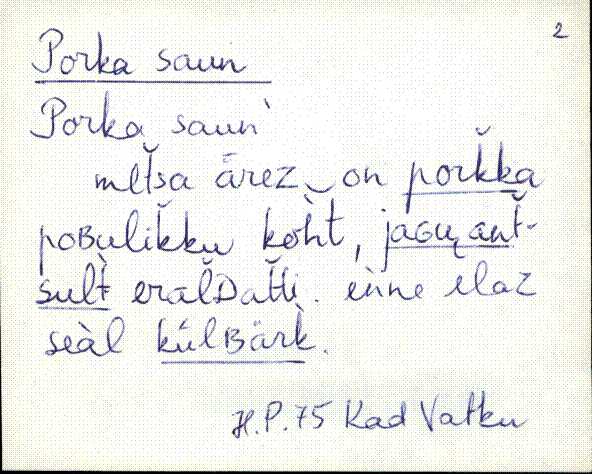 2
Porka saun
Porka saun`
metša ärez‿on poŕk̆ka
poʙulik̆ku kòht, jaɢu̬ ant̆-
sult̀ eralᴅatt̆i. enne elaz
seàl külʙärk̀.
H.P. 75 Kad Vatku